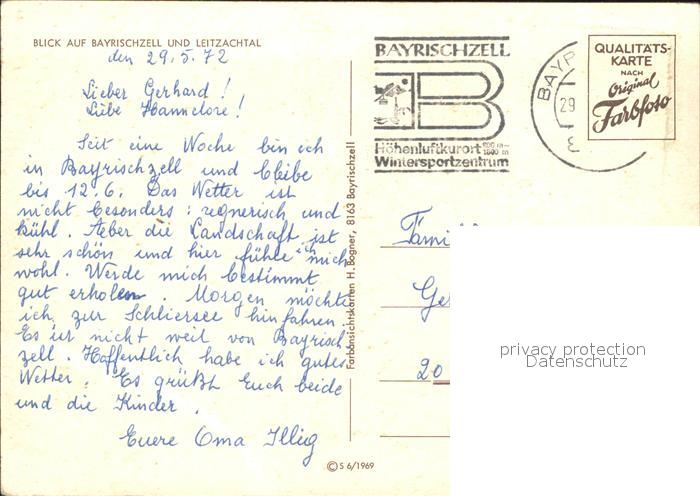 BLICK AUF BAYRISCHZELL UND LEITZACHTAL
den 29.5.72
Lieber Gerhard!
Liebe Hannelore!
Seit eine Woche bin ich
in Bayrischzell und bleibe
bis 12.6. Das Wetter ist
nicht besonders: regnerisch und
kühl. Aeber die Landschaft ist
sehr schön und hier fühle mich
wohl. Werde mich bestimmt
gut erholen. Morgen möchte
ich zur Schliersee hinfahren.
Es ist nicht weit von Bayrisch
zell. Hoffentlich habe ich gutes
Wetter. Es grüßt Euch beide
und die Kinder.
Euere Oma Illig
© S 6/1969
Farbansichtskarten H. Bogner, 8163 Bayrischzell
BAYRISCHZELL
B
Höhenluftkurort 800 m-
1800 m
Wintersportzentrum
BAYR
29
8
QUALITÄTS-
KARTE
NACH
Original
Farbfoto
Fami
Ge
20
privacy protection
Datenschutz